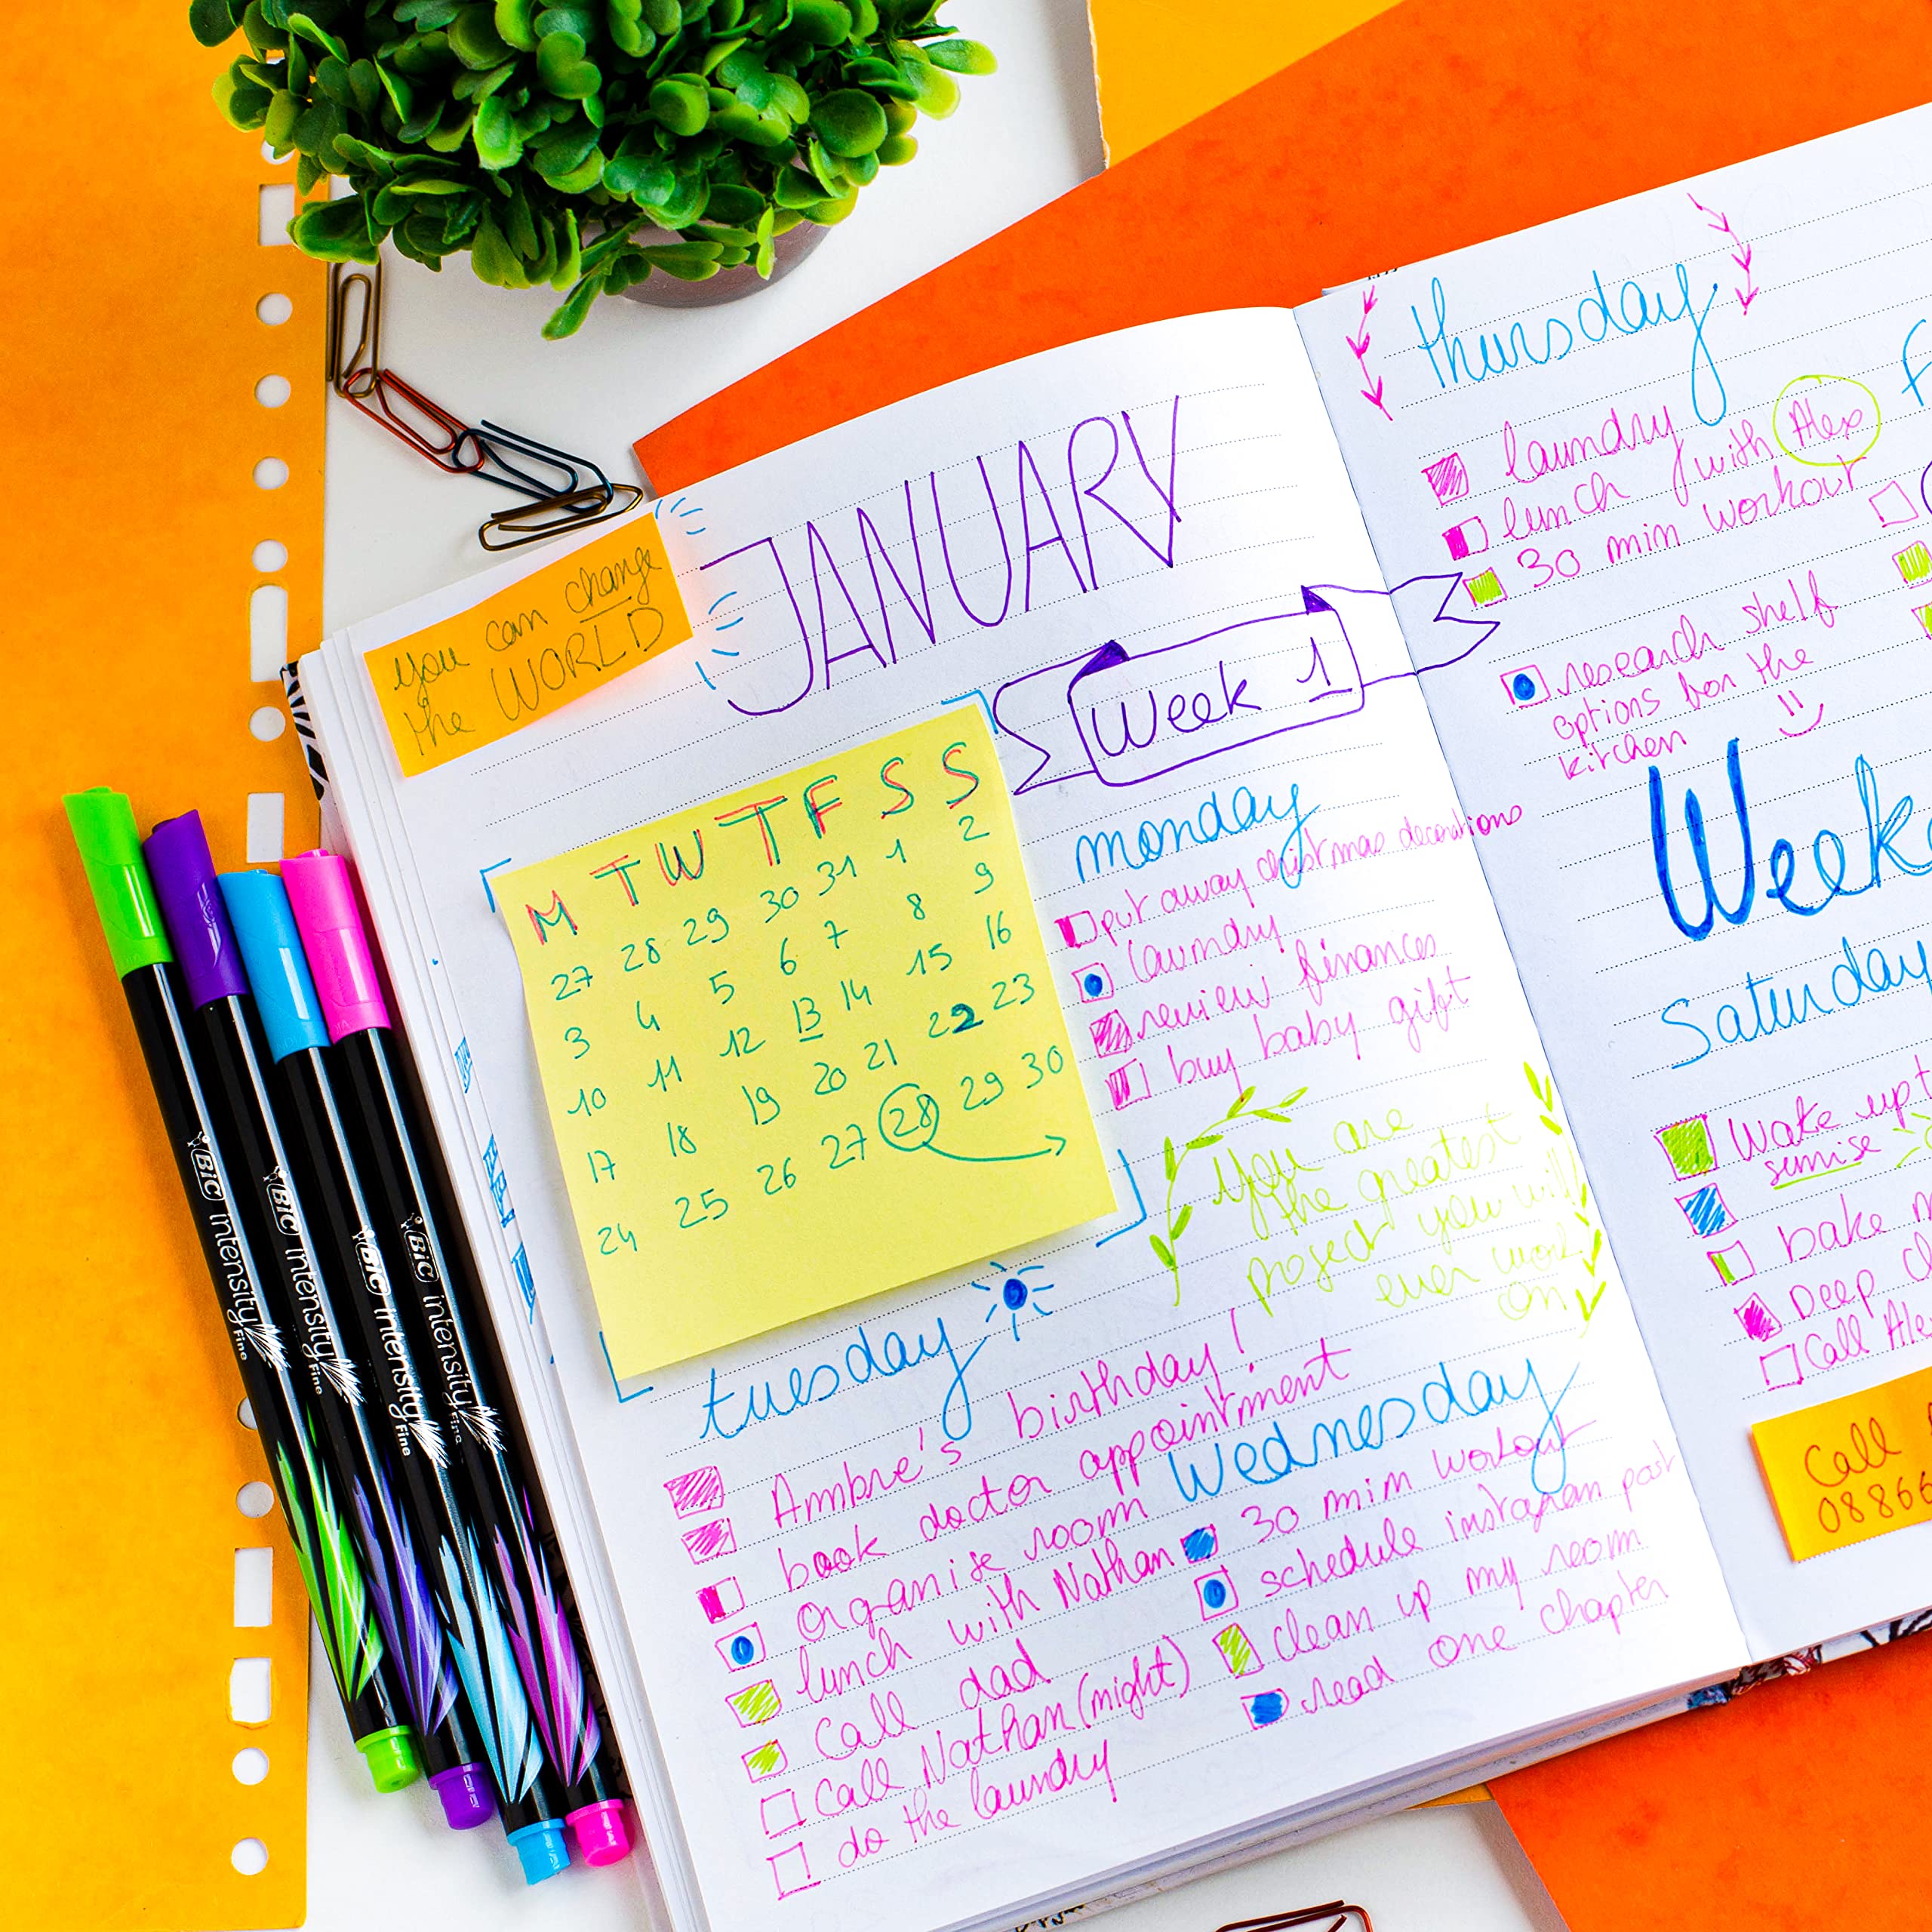 you can change
the WORLD
JANUARY
Week 1
M T W T F S S
27 28 29 30 31 1 2
3 4 5 6 7 8 9
10 11 12 13 14 15 16
17 18 19 20 21 22 23
24 25 26 27 28 29 30
monday
put away christmas decorations
laundry
review finances
buy baby gift
you are
the greatest
project you will
ever work
on
tuesday
Ambre's birthday!
book doctor appointment
organise room
lunch with Nathan
call dad
call Nathan (night)
do the laundry
Wednesday
30 min workout
schedule instagram post
clean up my room
read one chapter
thursday
laundry
lunch with Alex
30 min workout
research shelf
options for the
kitchen
F
Week
Saturday
Wake up
sunrise
bake
Deep
Call Ale
Call
08866
BIC intensity Fine
BIC intensity Fine
BIC intensity Fine
BIC intensity Fine